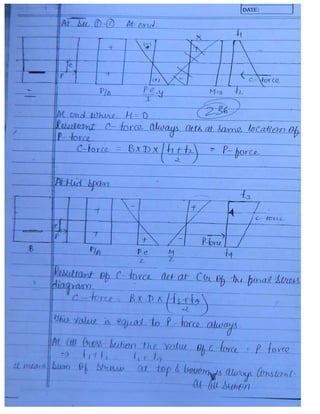 DATE:
At Sec ①-① At end.
f1
+ + - (+)
P e C-force
P/A P.e/Z.y M=0 f2
236
At end where M=0
Resultant C-force always acts at same location of
P-force
C-force = B×D×(f1+f2/2) = P-force
At Mid span
f3
+ - - C-force
P-force
B P/A P.e/Z M/Z f4
Resultant of C-force act at CG of the final stress
diagram
C-force = B×D×(f3+f4/2)
this value is equal to P-force always
At all cross-section the value of C-force = P force
⇒ f1+f2 = f3+f4
it means sum of stress at top & bottom is always constant
at all section